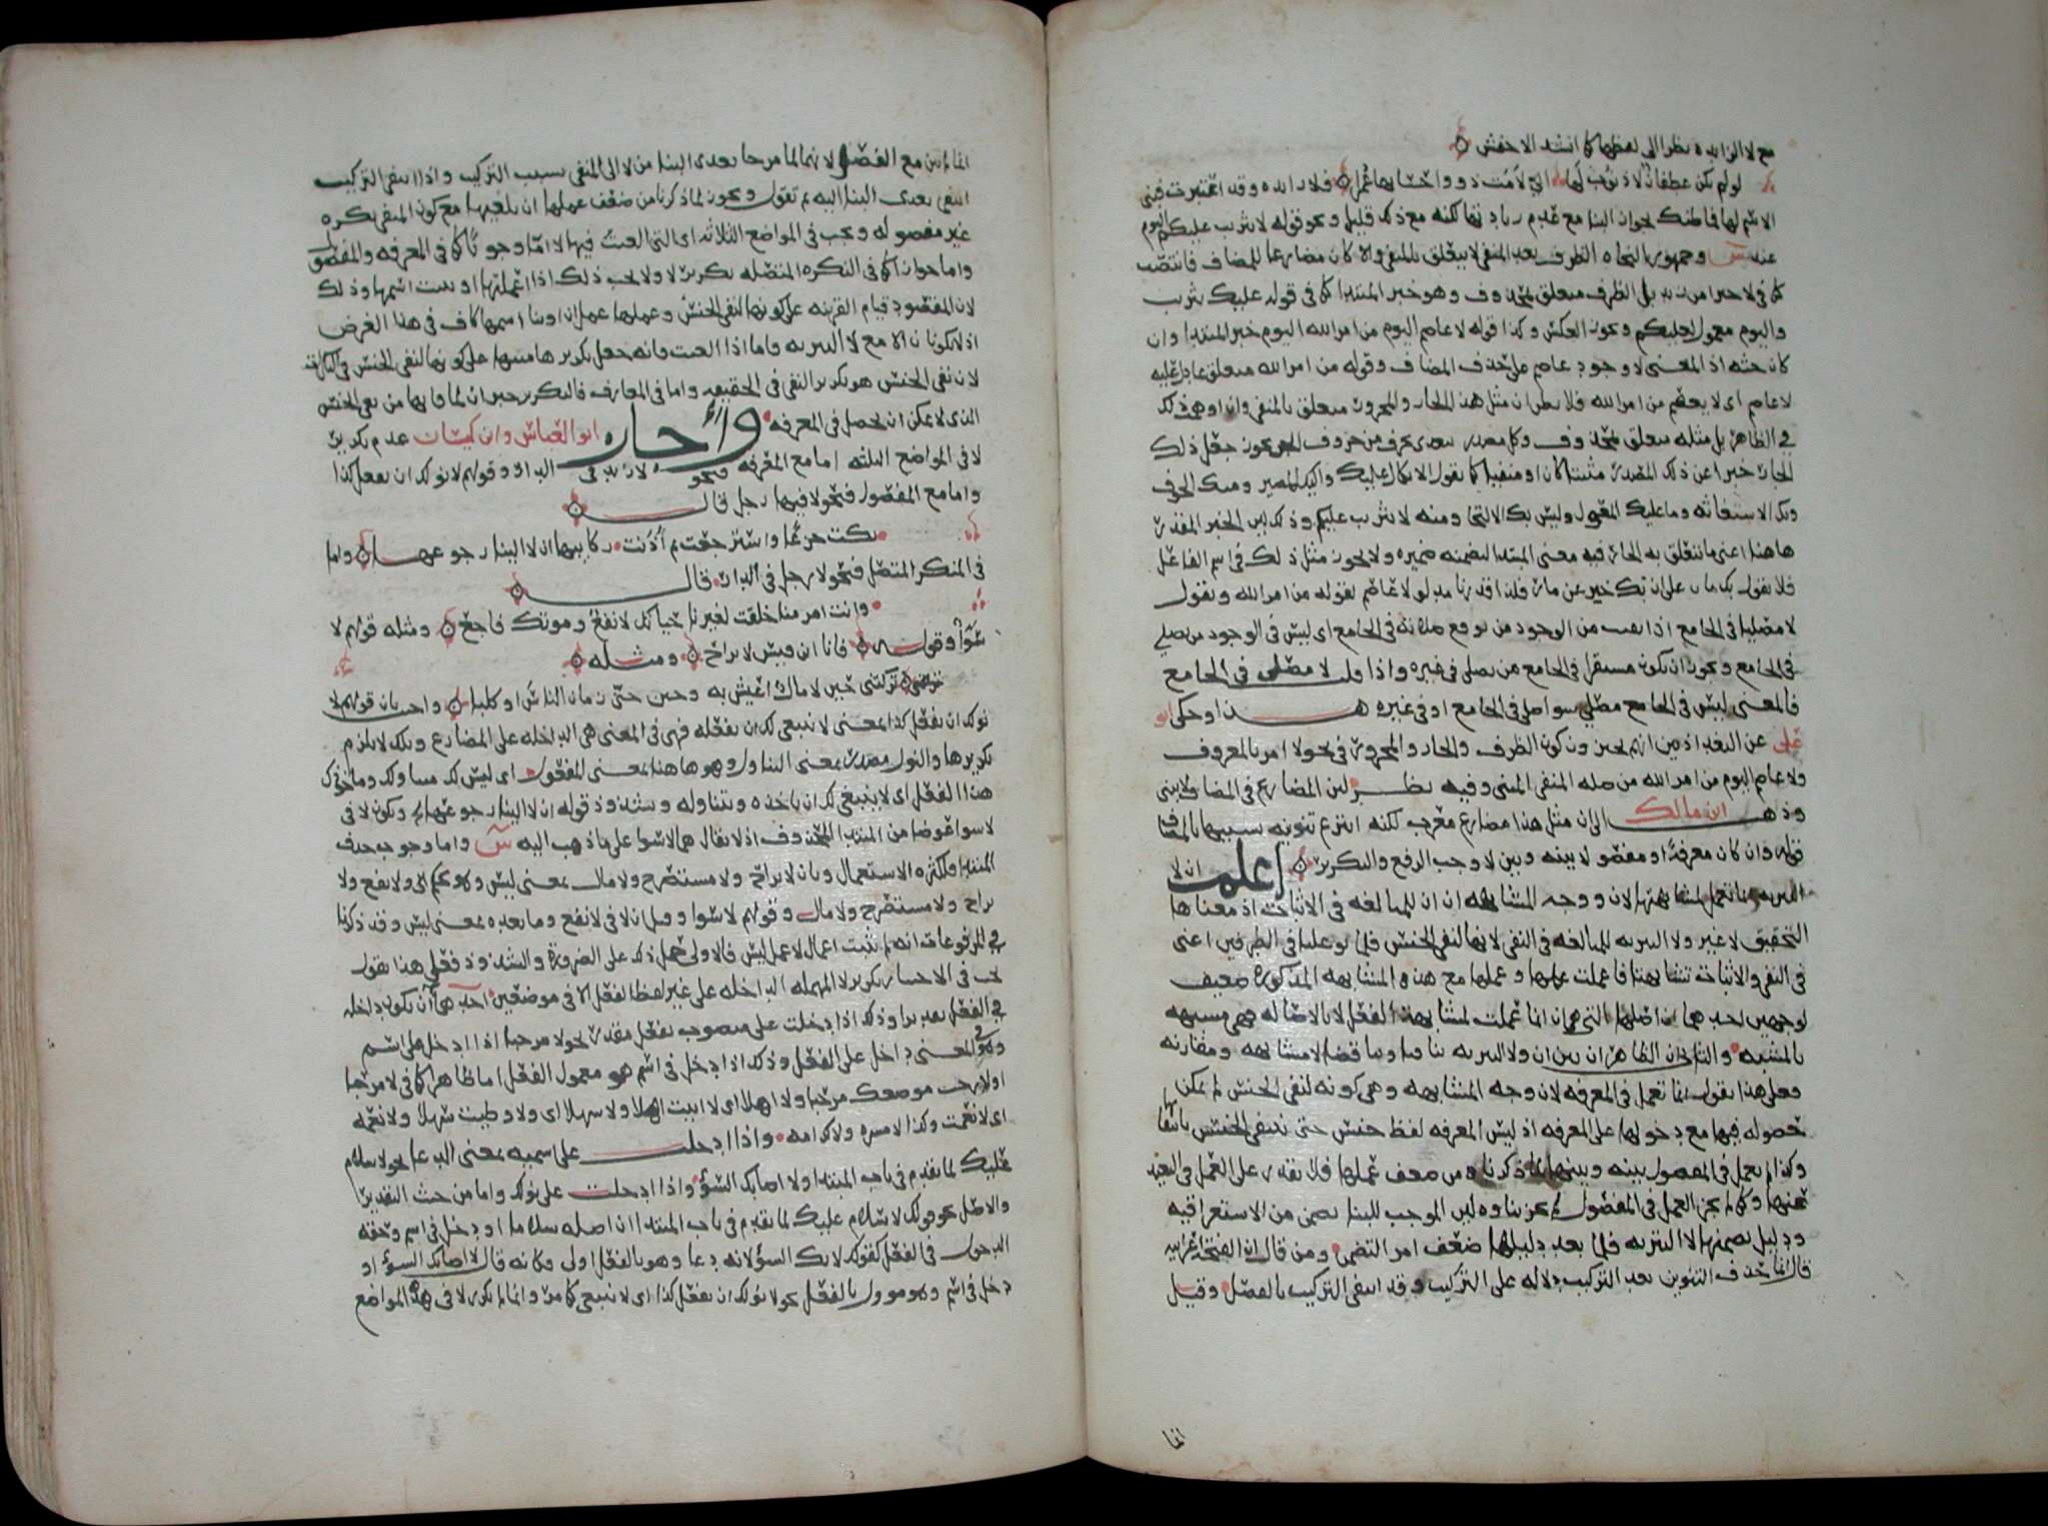 مع لا الزايده نظرا الى لفظها كما انشد الاخفش
لو لم تكن غطفان لا ذنوب لها الى لامت ذوو احسابها عمرا فلا زايده وقد اعتبرت فبنى
الاسم لها فما ظنك بجواز البنا مع عدم زيادتها لكنه مع ذلك قليل ونحو قوله لا تثريب عليكم اليوم
عند س وجمهور النحاه الظرف بعد المنفى لا يتعلق بالمنفى والا كان مضارعا للمضاف فانتصب
كما في لا خيرا من زيد بل الظرف متعلق بمحذوف وهو خبر المبتدا كما في قوله عليك تثريب
واليوم معمول لعليكم ويجوز العكس وكذا قوله لا عاصم اليوم من امر الله اليوم خبر المبتدا وان
كان جثه اذ المعنى لا وجود عاصم على حذف المضاف وقوله من امر الله متعلق بما دل عليه
لا عاصم اى لا يعصم من امر الله فلا تظن ان مثل هذا الجار والمجرور متعلق بالمنفى وان اوهم ذلك
في الظاهر بل مثله متعلق بمحذوف وكل مصدر يتعدى بحرف من حروف الجر يجوز جعل ذلك
الجار خبرا عن ذلك المصدر مثبتا كان او منفيا كما تقول الاتكال عليك واليك المصير ومنك الخوف
وبك الاستغاثه وما عليك المعول وليس بك الالتجا ومنه لا تثريب عليكم وذلك لان الخبر المقدر
هاهنا اعنى ما يتعلق به الجار فيه معنى المبتدا لتضمنه ضميره ولا يجوز مثل ذلك في اسم الفاعل
فلا تقول بك مار على ان بك خبر عن مار فلذا قدرنا مدلول لا عاصم لقوله من امر الله وتقول
لا مصليا في الجامع اذا نفيت من الوجود من توقع صلاته في الجامع اى ليس في الوجود من يصلى
في الجامع ويجوز ان يكون مستقرا في الجامع من يصلى في غيره واذا قلت لا مصلى في الجامع
فالمعنى ليس في الجامع مصلى سوا صلى في الجامع او في غيره هذا وحكى ابو
على عن البغداذيين انهم يجيزون كون الظرف والجار والمجرور في نحو لا امر بالمعروف
ولا عاصم اليوم من امر الله من صله المنفى المبنى وفيه نظر لان المضارع في المضاف لا يبنى
وذهب ابن مالك الى ان مثل هذا مضارع معرب لكنه انتزع تنوينه تشبيها بالمضاف
قوله وان كان معرفة او مفصولا بينه وبين لا وجب الرفع والتكرير اعلم ان لا
التبريه انما تعمل لمشابهتها لان ووجه المشابهه ان ان للمبالغه في الاثبات اذ معناها
التحقيق لا غير ولا التبريه للمبالغه في النفى لانها لنفى الجنس فلما توغلتا في الطرفين اعنى
في النفى والاثبات تشابهتا فاعملت عملها وعملها مع هذه المشابهه المذكوره ضعيف
لوجهين احدهما ان اصلها التى هى ان انما عملت لمشابهة الفعل لا بالاصاله فهى مشبهه
بالمشبهه والثانى ان الظاهر ان بين ان ولا التبريه تنافيا وتناقضا لا مشابهه ومقاربه
وعلى هذا نقول انما لم تعمل في المعرفه لان وجه المشابهه وهى كونه لنفى الجنس لم يمكن
حصوله فيها مع دخولها على المعرفه اذ ليس المعرفه لفظ جنس حتى ينتفى الجنس بانتفائها
وكذا لم تعمل في المفصول بينه وبينها لما ذكرنا من ضعف عملها فلا تقدر على العمل في البعيد
عنها وكما لم يجز العمل في المفصول لم يجز بناوه لان الموجب للبنا تضمن من الاستغراقيه
ودليل تضمنها لا التبريه فلما بعد دليلها ضعف امر التضمن ومن قال ان الفتحه اعرابيه
قال انما حذف التنوين بعد التركيب دلاله على التركيب وقد انتفى التركيب بالفصل وقيل
انما
انما لم يبن مع الفصل لانهما لما مزجا تعدى البنا من لا الى المنفى بسبب التركيب واذا انتفى التركيب
انتفى تعدى البنا اليه ثم نقول ويجوز لما ذكرنا من ضعف عملها ان تلغيها مع كون المنفى نكره
غير مفصوله ويجب في المواضع الثلاثه اى التى الغيت فيها لا اما وجوبا كما في المعرفه والمفصول
واما جوازا كما في النكره المتصله تكرير لا ولا يجب ذلك اذا اعملتها او بنيت اسمها وذلك
لان المقصود قيام القرينه على كونها لنفى الجنس وعملها عمل ان او بنا اسمها كاف في هذا الغرض
اذ لا يكونان الا مع لا التبريه واما اذا الغيت فانه جعل تكريرها منبها على كونها لنفى الجنس في النكرات
لان نفى الجنس هو تكرير النفى في الحقيقه واما في المعارف فالتكرير جبران لما فاتها من نفى الجنس
الذى لا يمكن ان يحصل في المعرفه واجاز ابو العباس وابن كيسان عدم تكرير
لا في المواضع الثلثه اما مع المعرفه فنحو لا زيد في الدار وقولهم لا نولك ان تفعل كذا
واما مع المفصول فنحو لا فيها رجل قال
بكت جزعا واسترجعت ثم آذنت ركايبها ان لا الينا رجوعها واما
في المنكر المتصل فنحو لا رجل في الدار قال
وانت امرو منا خلقت لغيرنا حياتك لا نفع وموتك فاجع ومثله قولهم لا
سوآ وقوله فانا ابن قيس لا براح ومثله
تركتنى حين لا مال اعيش به وحين جن زمان الناس او كلبا واجيب بان قولهم لا
نولك ان تفعل كذا بمعنى لا ينبغى لك ان تفعله فهى في المعنى هى الداخله على المضارع وتلك لا يلزم
تكريرها والنول مصدر بمعنى التناول وهو هاهنا بمعنى المفعول اى ليس لك متناولك وماخوذك
هذا الفعل اى لا ينبغى لك ان تاخذه وتتناوله وشذوذ قوله ان لا الينا رجوعها ويكون لا في
لا سوا عوضا من المبتدا المحذوف اذ لا يقال هما لا سوا على ما ذهب اليه س واما وجوب حذف
المبتدا فلكثره الاستعمال وبان لا براح ولا مستصرخ ولا مال بمعنى ليس
براح ولا مستصرخ ولا مال وقولهم لا سوا وقيل ان لا في لا نفع وما بعده بمعنى ليس وقد ذكرنا
في المرفوعات انه لم يثبت اعمال لا عمل ليس فالاولى حمل ذلك على الضرورة والشذوذ فعلى هذا نقول
يجب في الاختيار تكرير لا المهمله الداخله على غير لفظ الفعل الا في موضعين احدهما ان تكون داخله
في الفعل تقديرا وذلك اذا دخلت على منصوب بفعل مقدر نحو لا مرحبا اذا دخل على اسم
وهو في المعنى داخل على الفعل وذلك اذا دخل في اسم هو معمول الفعل اما ظاهرا كما في لا مرحبا
اى لا رحب موضعك مرحبا ولا اهلا اى لا اتيت اهلا ولا سهلا اى ولا وطيت سهلا ولا نعمه
اى لا نعمت وكذا لا مسره ولا كرامه واذا دخلت على اسميه بمعنى الدعا نحو لا سلام
عليك لما تقدم في باب المبتدا ولا اصابك السؤ واذا دخلت على نولك واما من حيث التقدير
والاصل نحو قولك لا سلام عليك لما تقدم في باب المبتدا ان اصله سلاما او دخل في اسم وحقه
الدخول في الفعل كقولك لا بك السؤ لانه دعا وهو بالفعل اولى فكانه قال لا اصابك السؤ او
دخل في اسم وهو موول بالفعل نحو لا نولك ان تفعل كذا اى لا ينبغى كما مر وانما لم تكرر لا في هذه المواضع